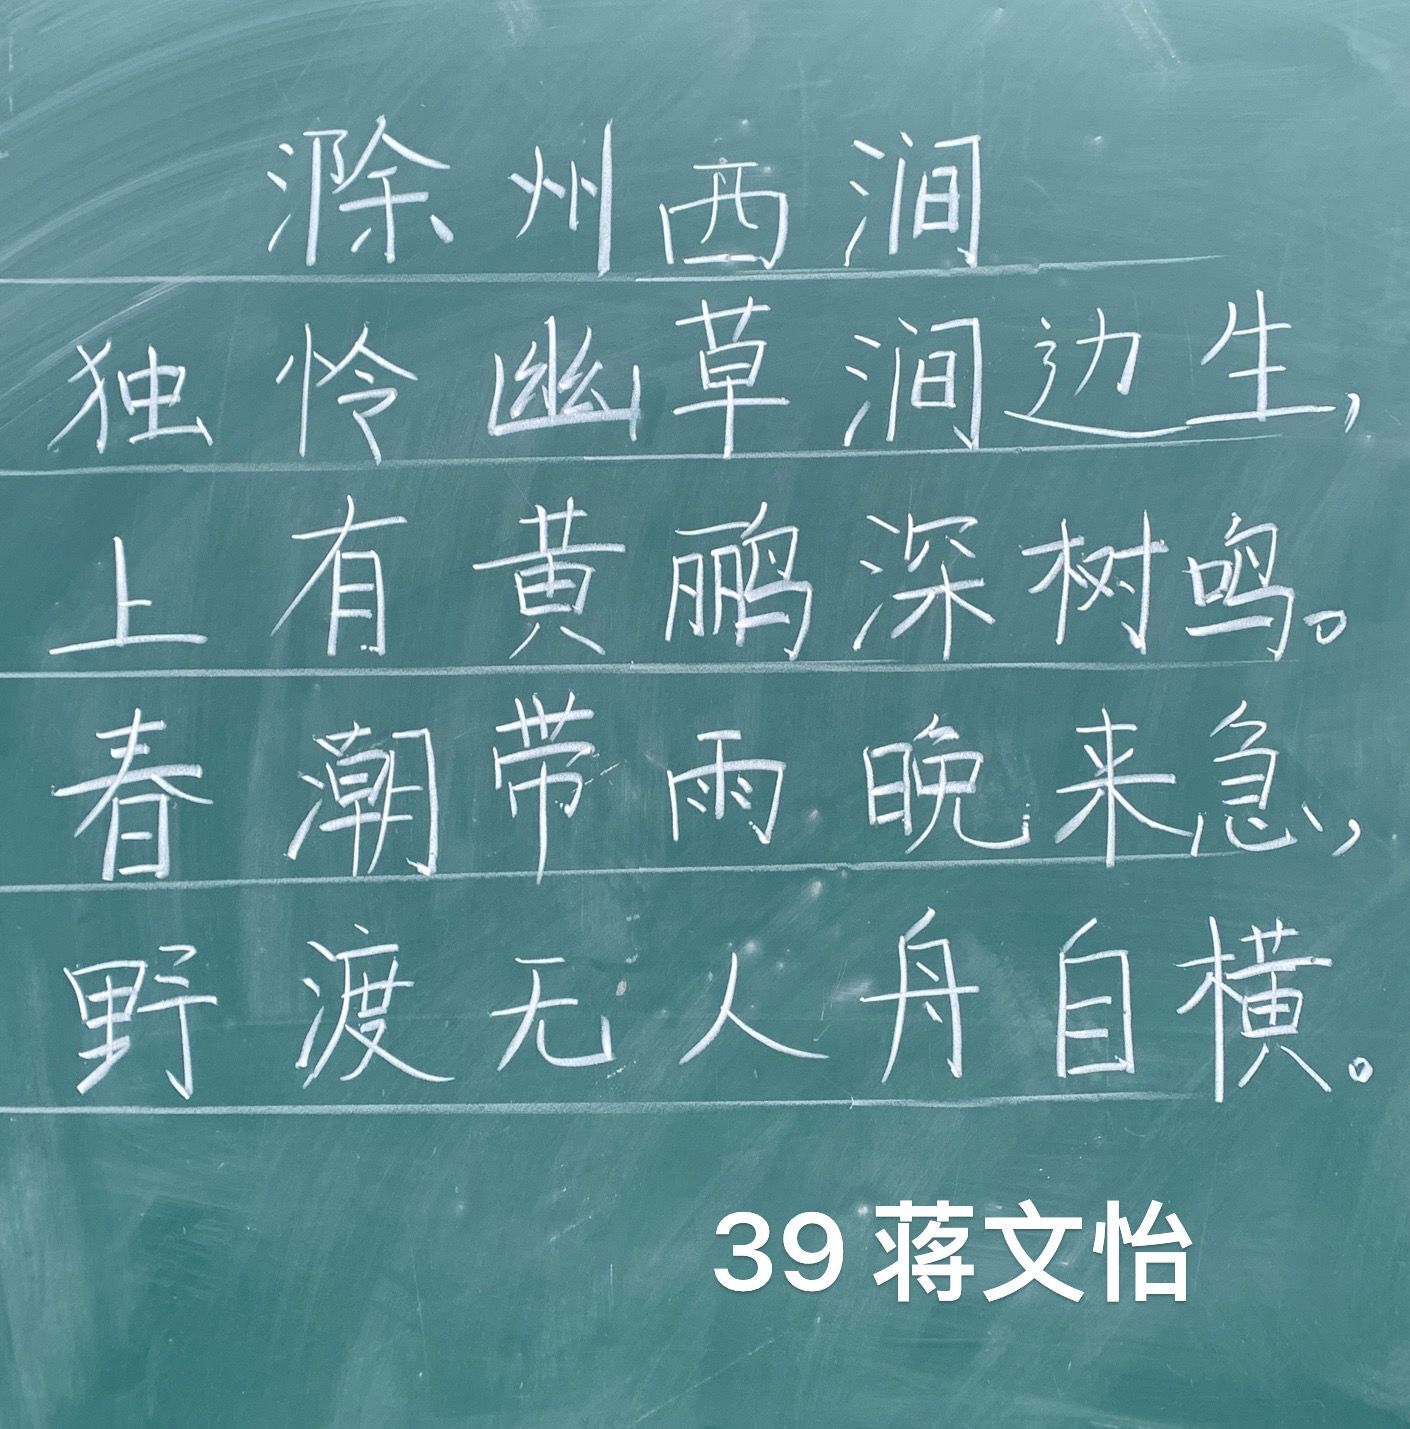 滁州西涧
独怜幽草涧边生,
上有黄鹂深树鸣。
春潮带雨晚来急,
野渡无人舟自横。
39 蒋文怡